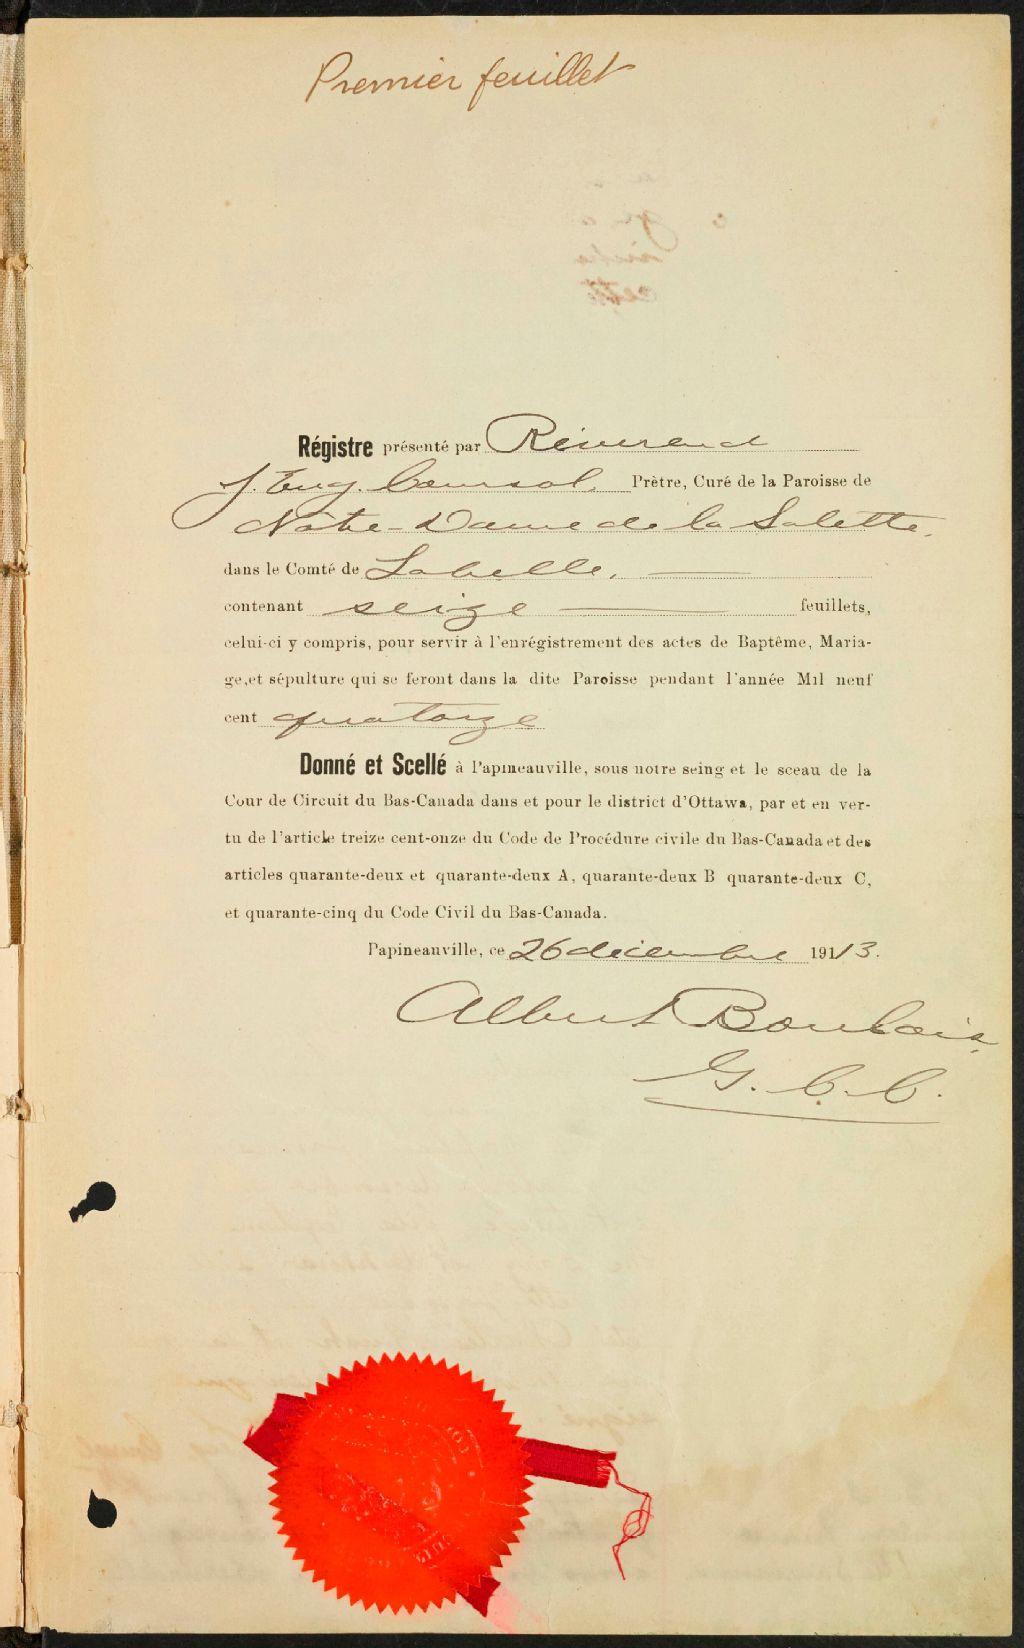 Premier feuillet
Régistre présenté par Révérend
J. Eug. Coursol. Prètre, Curé de la Paroisse de
Nôtre-Dame de la Salette,
dans le Comté de Labelle.
contenant seize feuillets,
celui-ci y compris, pour servir à l'enrégistrement des actes de Baptême, Maria-
ge,et sépulture qui se feront dans la dite Paroisse pendant l'année Mil neuf
cent quatorze
Donné et Scellé à Papineauville, sous notre seing et le sceau de la
Cour de Circuit du Bas-Canada dans et pour le district d'Ottawa, par et en ver-
tu de l'article treize cent-onze du Code de Procédure civile du Bas-Canada et des
articles quarante-deux et quarante-deux A, quarante-deux B quarante-deux C,
et quarante-cinq du Code Civil du Bas-Canada.
Papineauville, ce 26 décembre 19113.
Albert
G. C. C.